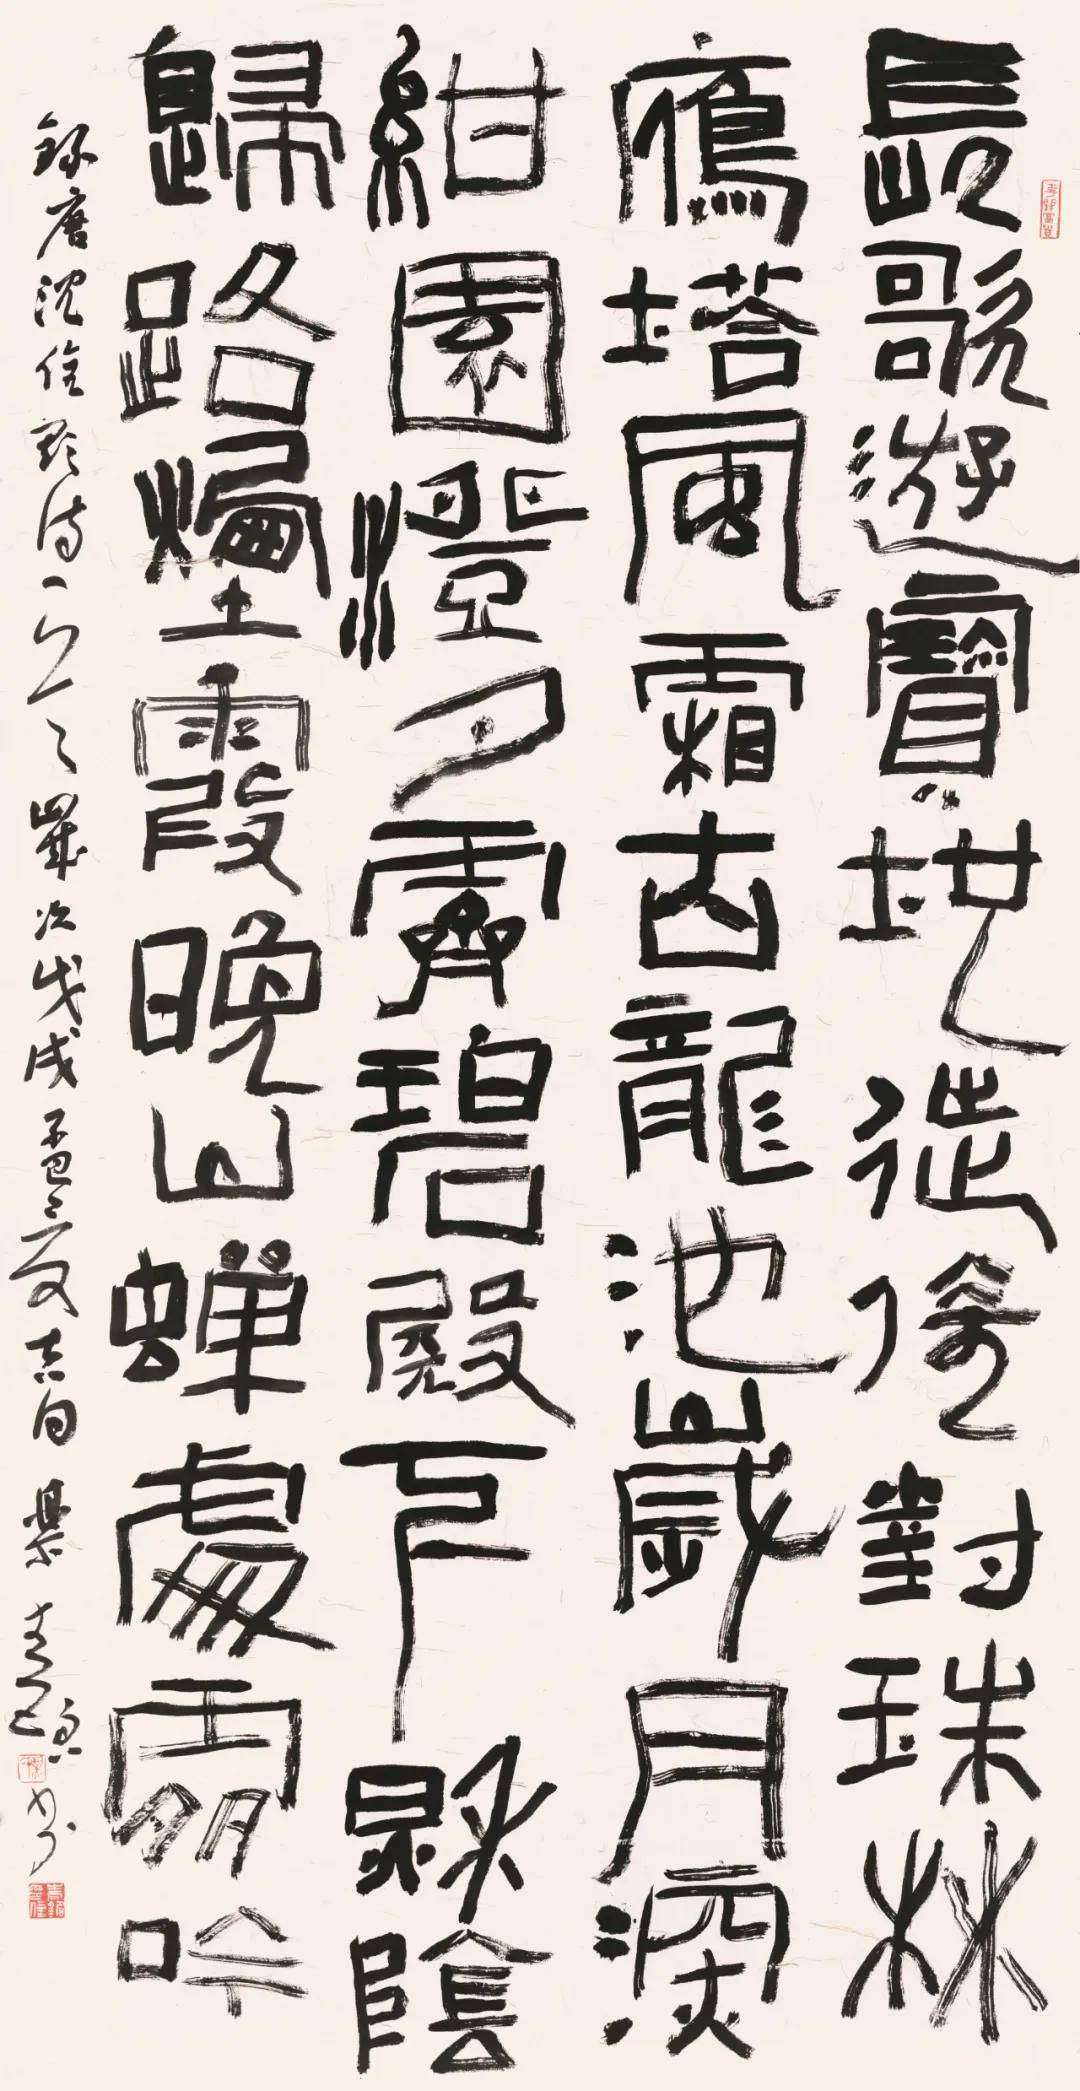 長歌遊寶地徙倚對珠林
鴈塔風霜古龍池歲月深
紺園澄夕霽碧殿下秋陰
歸路煙霞晚山蟬處處吟
錄唐沈佺期詩一首歲次戊戌孟夏吉日